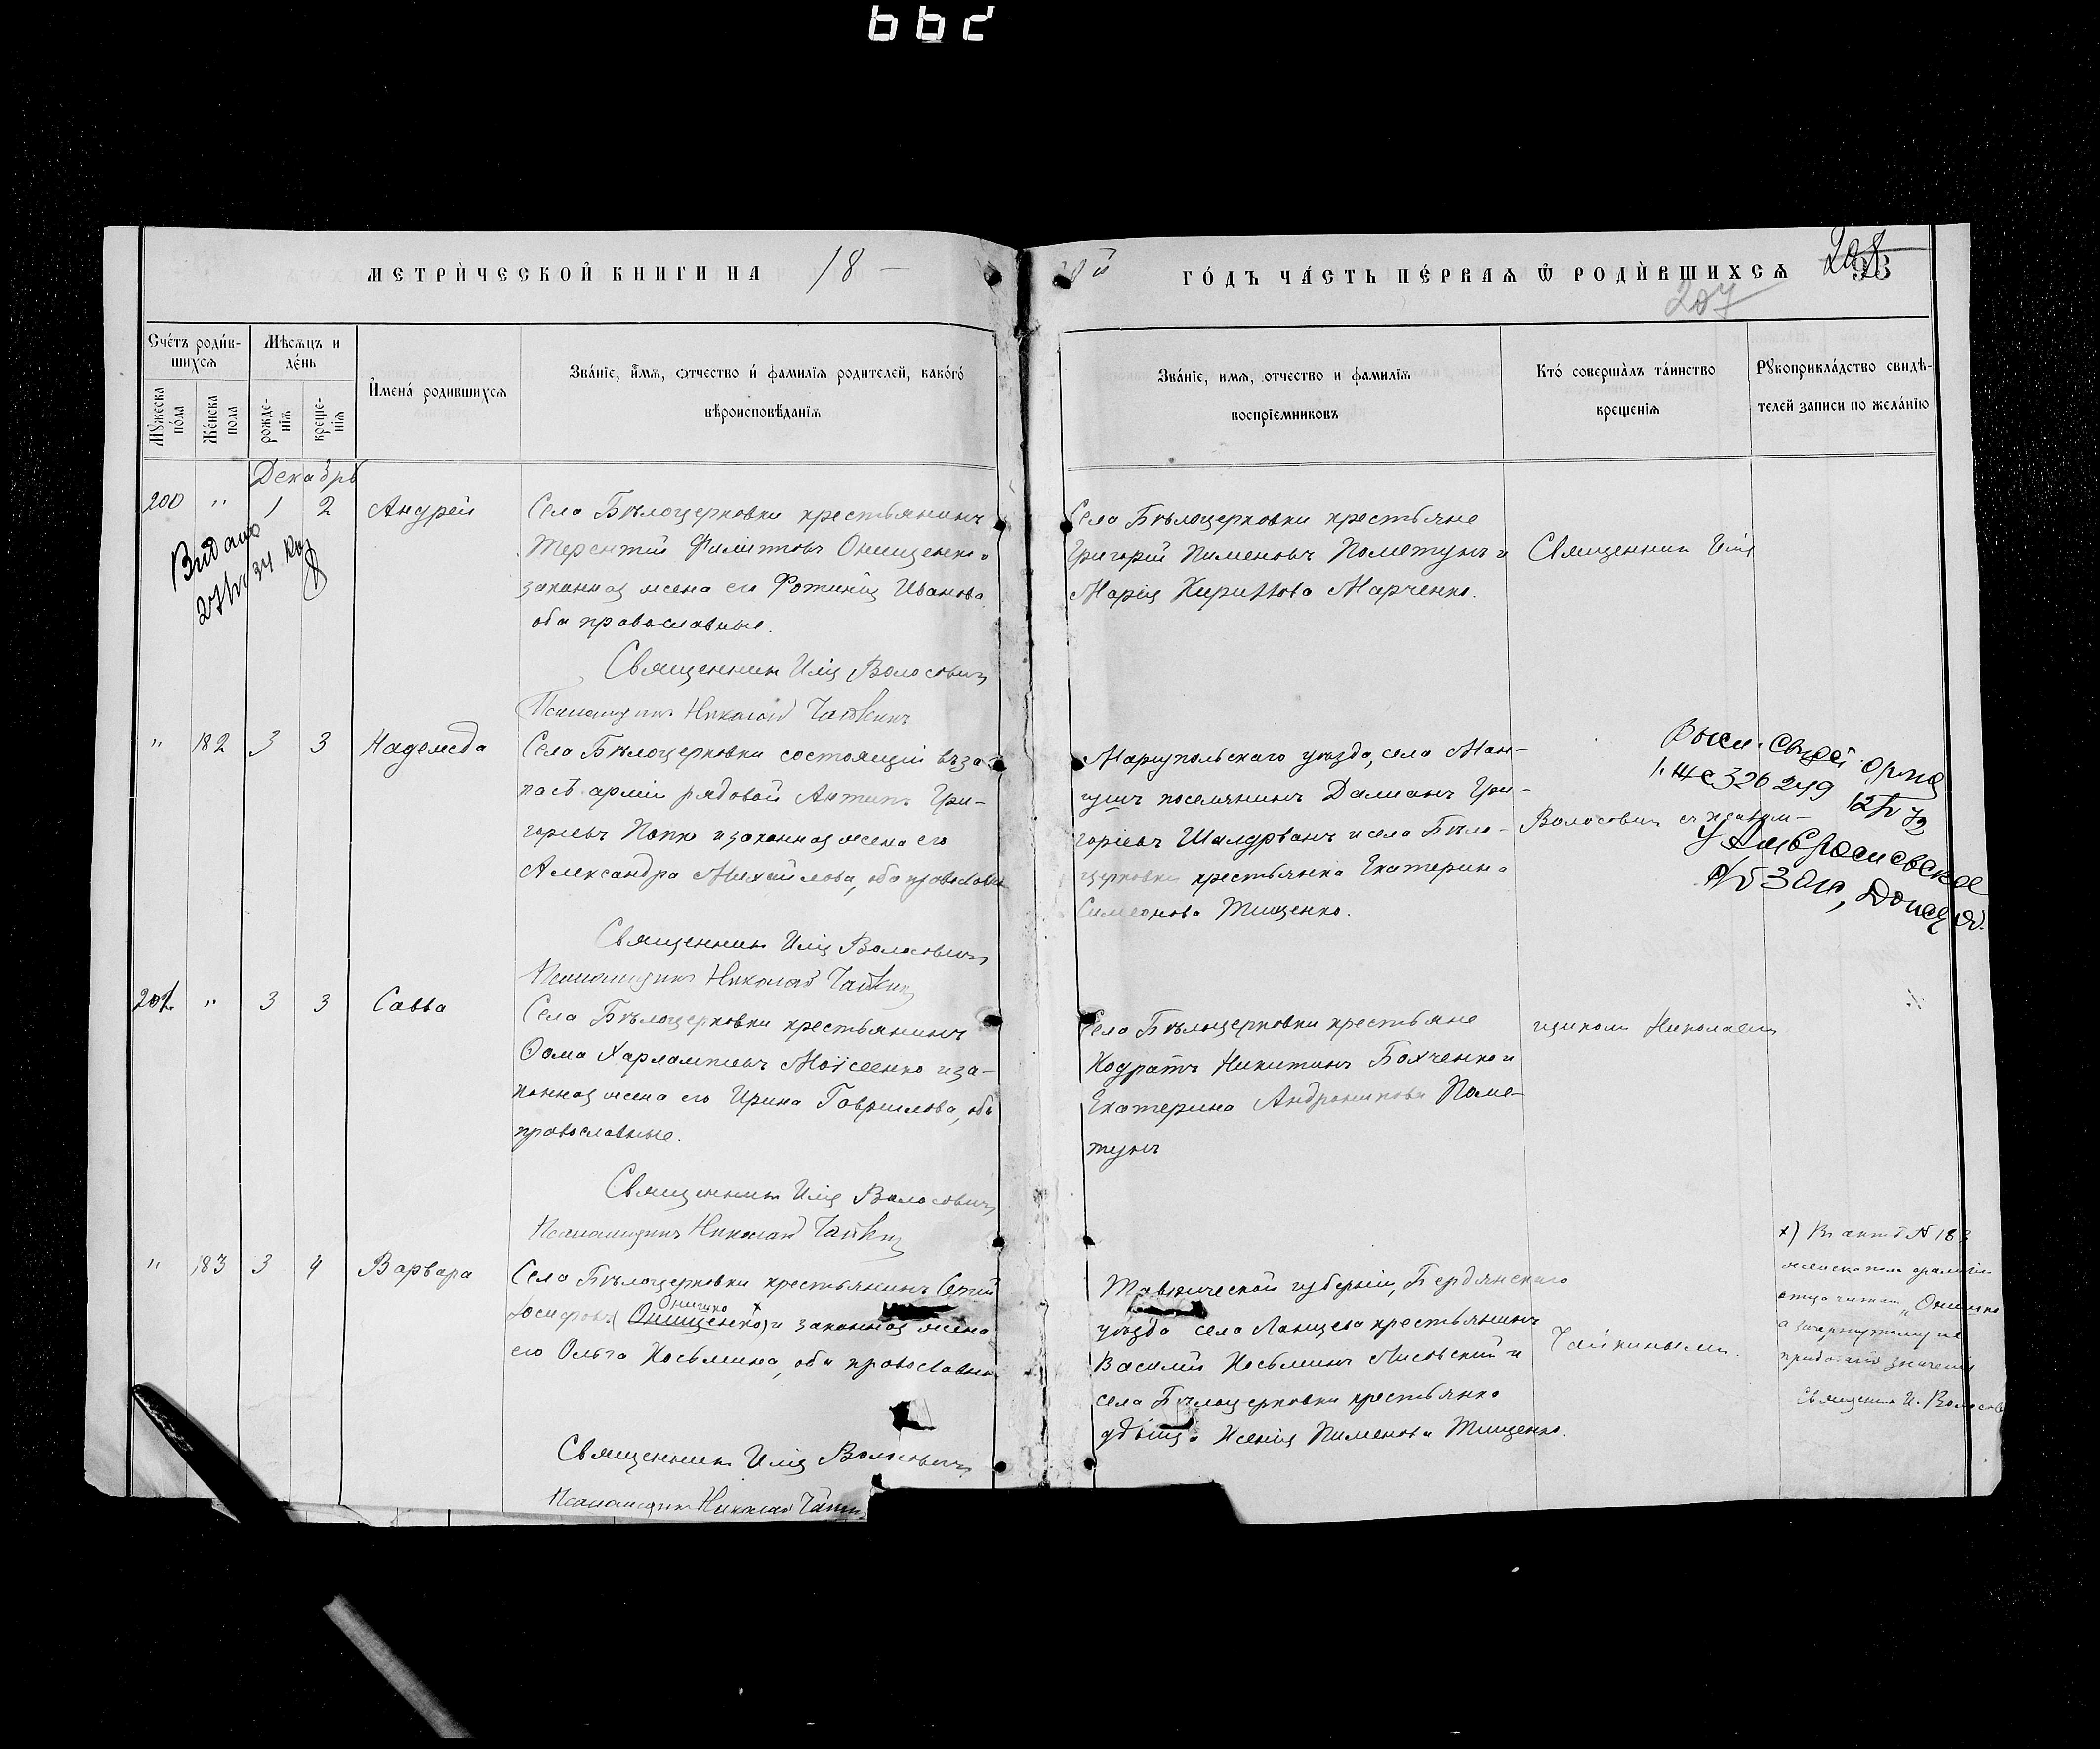 МЕТРИ́ЧЕСКОЙ КНИГИ НА 18
ГО́ДЪ ЧА́СТЬ ПЕ́РВАЯ Ѿ РОДИ́ВШИХСѦ
208
93
207
Сче́тъ роди́в-
шихсѧ
Мѣсѧцъ и
де́нь
Мꙋжеска
по́ла
Же́нска
пола
рожде-
нїѧ
креще-
нїѧ
И҆мена̀ родившихсѧ
Зва́нїе, и҆́мѧ, ѻтчество и҆ фамилїѧ родителей, како́гѡ
вѣроисповѣданїѧ
Зва́нїе, имѧ, отчество и фамилїѧ
воспрїемниковъ
Кто̀ соверша́лъ та́инство
крещенїѧ
Рꙋкоприкла́дство свидѣ-
телей записи по жела́нїю
Декабрь
200 " 1 2 Андрей
Видано
Села Бѣлоцерковки крестьянинъ
Терентій Филиповъ Онищенко и
законная жена его Фотинія Иванова
оба православные.
Священникъ Илія Волосовичъ
Псаломщикъ Николай Чайкинъ
Села Бѣлоцерковки крестьяне
Григорій Пименовъ Пометунъ и
Марія Кириллова Марченко.
Священникъ Илія
" 182 3 3 Надежда
Села Бѣлоцерковки состоящій въ за-
пасѣ арміи рядовой Антипъ Гри-
горіевъ Попко и законная жена его
Александра Михайлова, оба православн
Священникъ Илія Волосовичъ
Псаломщикъ Николай Чайкинъ
Маріупольскаго уѣзда, села Ман-
гушъ поселянинъ Даміанъ Гри-
горіевъ Шалдрванъ и села Бѣло-
церковки крестьянка Екатерина
Симеонова Тищенко.
Волосовичъ съ псалом-
326249
201 " 3 3 Савва
Села Бѣлоцерковки крестьянинъ
Ѳома Харлампіевъ Моісеенко и за-
конная жена его Ирина Гаврилова, оба
православные.
Священникъ Илія Волосовичъ
Псаломщикъ Николай Чайкинъ
Села Бѣлоцерковки крестьяне
Кодратъ Никитинъ Бохченко и
Екатерина Андроникова Поме-
тунъ
щикомъ Николаемъ
" 183 3 4 Варвара
Села Бѣлоцерковки крестьянинъ
Онишко
Іосифовъ (Онищенко) и законная жена
его Ольга Косьмина, оба православные
Священникъ Илія Волосовичъ
Псаломщикъ Николай
Таврической губерніи, Бердянскаго
уѣзда села Ланцева крестьянинъ
Василій Косьминъ Лисовский и
села Бѣлоцерковки крестьянка
дѣвица Ксенія Пименова Тищенко.
Чайкинымъ.
х) Въ актѣ № 183
женска пола фамилію
отца читать „Онишко
а зачеркнутому не
придавать значенія
Священникъ И. Волосов